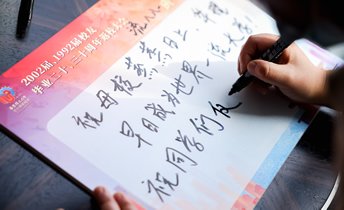 2002届、1992届校友
毕业二十、三十周年返校大会
祝母校蒸蒸日上、
早日成为世界一流大学！
祝同学们友